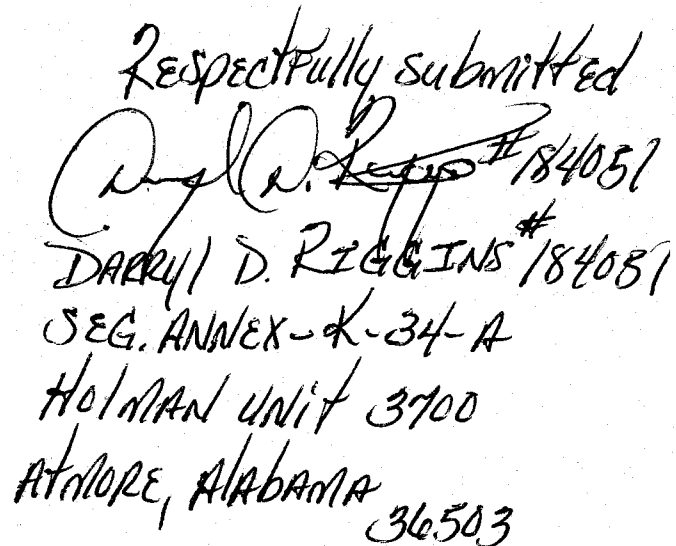 Respectfully submitted
Darryl D. Riggins #184051
DARRYl D. RIGGINS #184051
SEG. ANNEX-K-34-A
HOlMAN UNit 3700
AtMORE, AlABAMA
36503